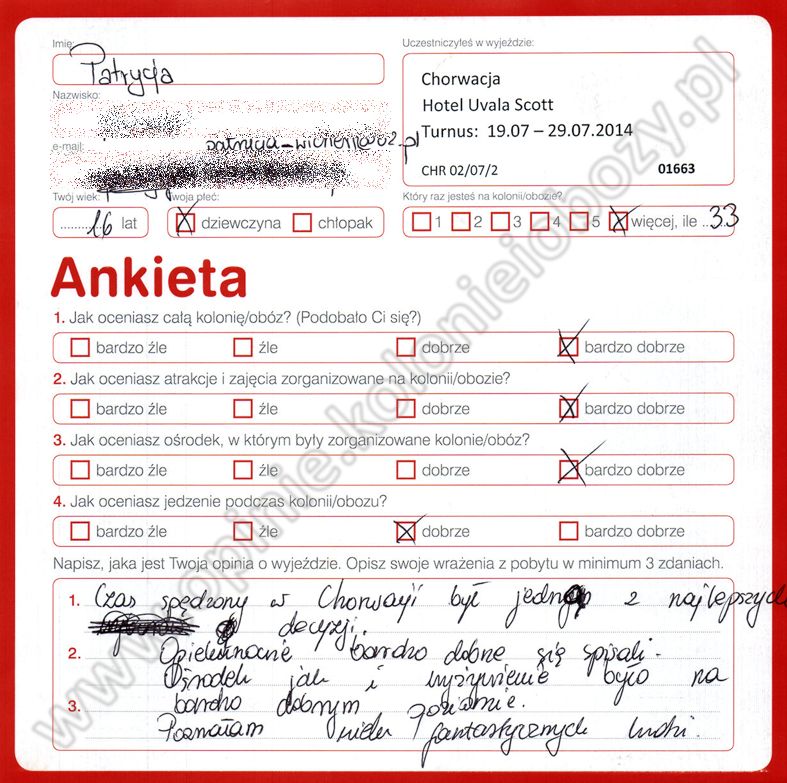 Imię:
Patrycja
Nazwisko:
e-mail:
Twój wiek:
16 lat
Twoja płeć:
dziewczyna chłopak
Uczestniczyłeś w wyjeździe:
Chorwacja
Hotel Uvala Scott
Turnus: 19.07 – 29.07.2014
CHR 02/07/2 01663
Który raz jesteś na kolonii/obozie?
1 2 3 4 5 więcej, ile 33
Ankieta
1. Jak oceniasz całą kolonię/obóz? (Podobało Ci się?)
bardzo źle źle dobrze bardzo dobrze
2. Jak oceniasz atrakcje i zajęcia zorganizowane na kolonii/obozie?
bardzo źle źle dobrze bardzo dobrze
3. Jak oceniasz ośrodek, w którym były zorganizowane kolonie/obóz?
bardzo źle źle dobrze bardzo dobrze
4. Jak oceniasz jedzenie podczas kolonii/obozu?
bardzo źle źle dobrze bardzo dobrze
Napisz, jaka jest Twoja opinia o wyjeździe. Opisz swoje wrażenia z pobytu w minimum 3 zdaniach.
1. Czas spędzony w Chorwacji był jedną z najlepszych
decyzji.
2. Opiekunowie bardzo dobrze się spisali.
Ośrodek jak i wyżywienie było na
3. bardzo dobrym poziomie.
Poznałam wielu fantastycznych ludzi.
www.opinie.kolonieiobozy.pl